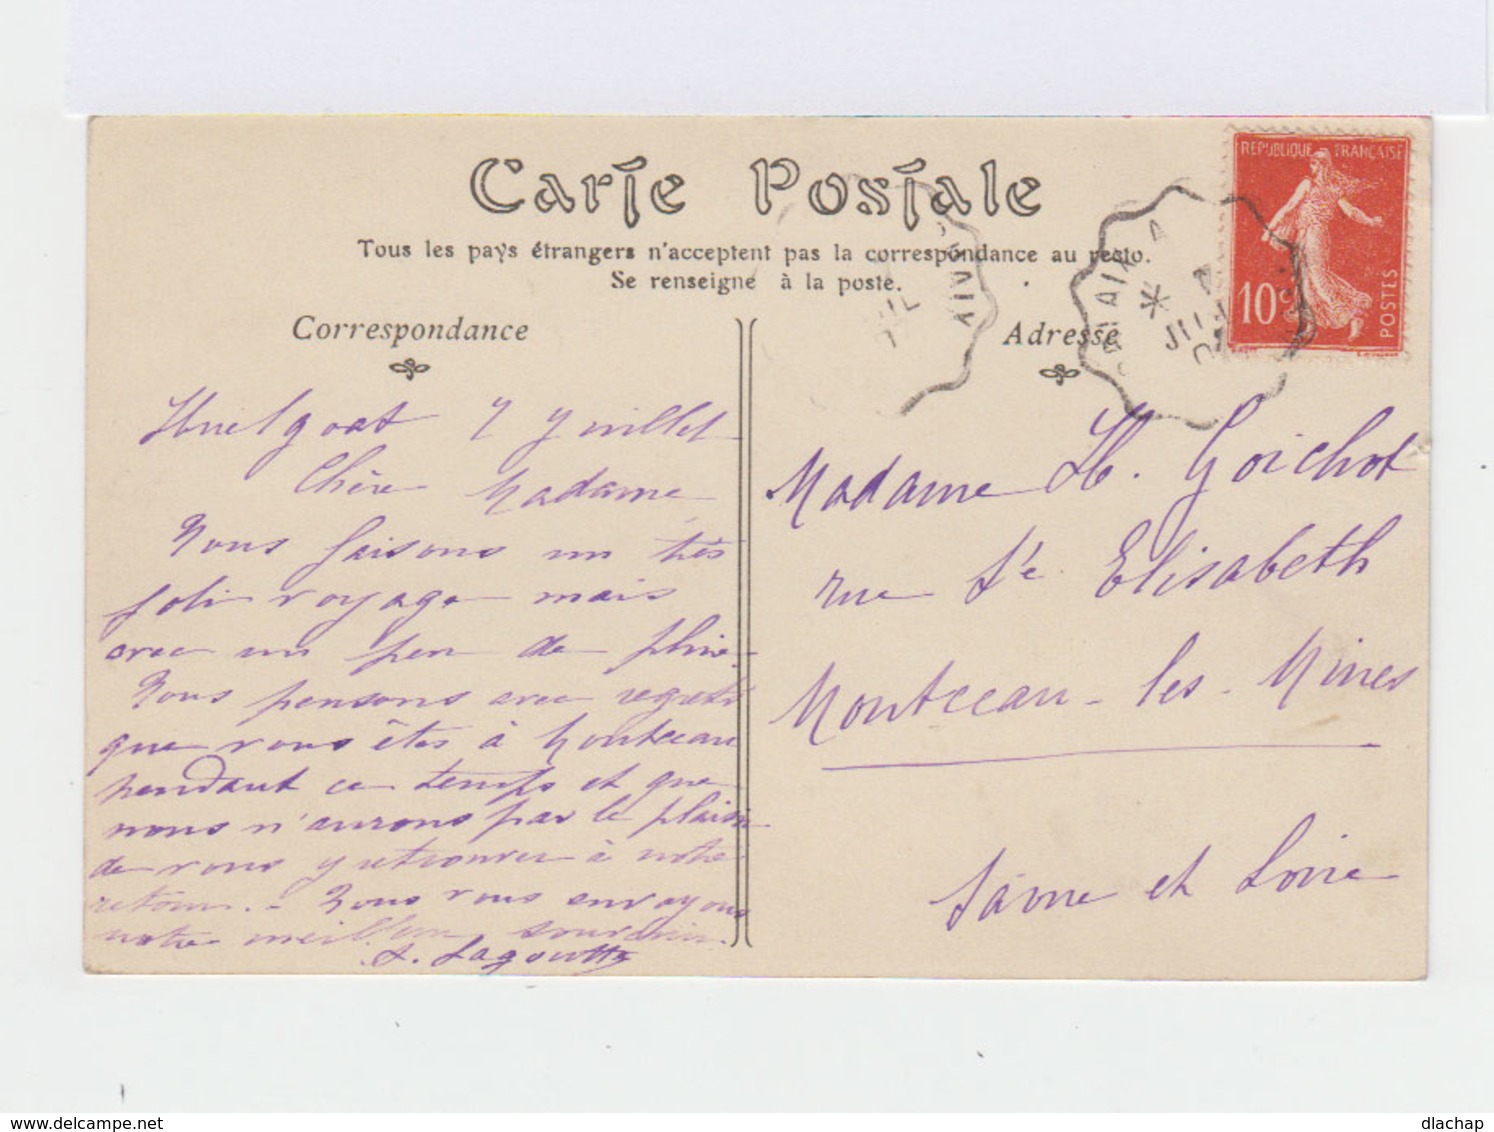 Carte Postale
Tous les pays étrangers n'acceptent pas la correspondance au recto.
Se renseigne à la poste.
Correspondance
Adresse
REPUBLIQUE FRANÇAISE
10c
POSTES
Huelgoat 7 Juillet
Chère Madame
Nous faisons un très
joli voyage mais
avec un peu de pluie.
Nous pensons avec regret
que vous êtes à Montceau
pendant ce temps et que
nous n'aurons pas le plaisir
de vous y retrouver à notre
retour. - Nous vous envoyons
notre meilleur souvenir.
Lagoutte
Madame H. Goichot
rue Ste Elisabeth
Montceau-les-Mines
Saône et Loire
delcampe.net
dlachap